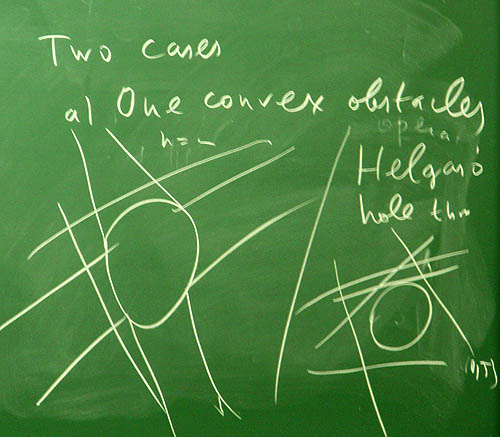 Two cases
a) One convex obstacles
h = ~
Helgasó
hole thm